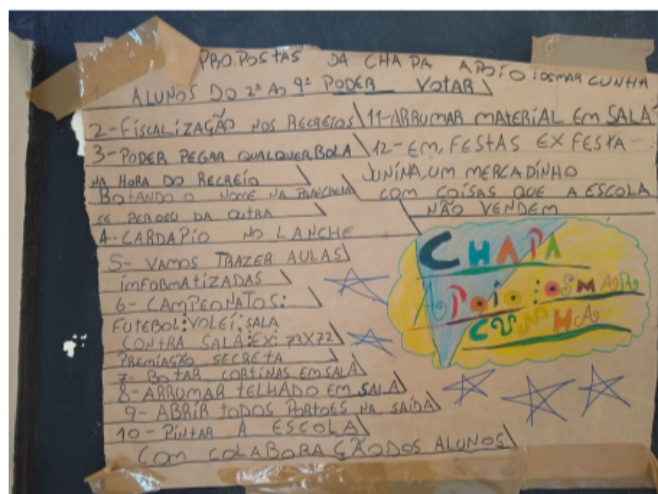 PROPOSTAS DA CHAPA APOIO: OSMAR CUNHA
1- ALUNOS DO 2º AO 9º PODER VOTAR
2- FISCALIZAÇÃO NOS RECREIOS
3- PODER PEGAR QUALQUER BOLA
NA HORA DO RECREIO
BOTANDO O NOME NA
SE PERDEU DA OUTRA
4- CARDAPIO NO LANCHE
5- VAMOS TRAZER AULAS
IMFORMATIZADAS
6- CAMPEONATOS:
FUTEBOL: VOLEI: SALA
CONTRA SALA: EX: 73X72
PREMIASÃO SECRETA
7- BOTAR CORTINAS EM SALA
8- ARRUMAR TELHADO EM SALA
9- ABRIR TODOS PORTOES NA SAÍDA
10- PINTAR A ESCOLA
COM COLABORAÇÃO DOS ALUNOS
11- ARRUMAR MATERIAL EM SALA
12- EM, FESTAS EX FESTA -
JUNINA, UM MERCADINHO
COM COISAS QUE A ESCOLA
NÃO VENDEM
CHAPA
APOIO: OSMAR
CUNHA